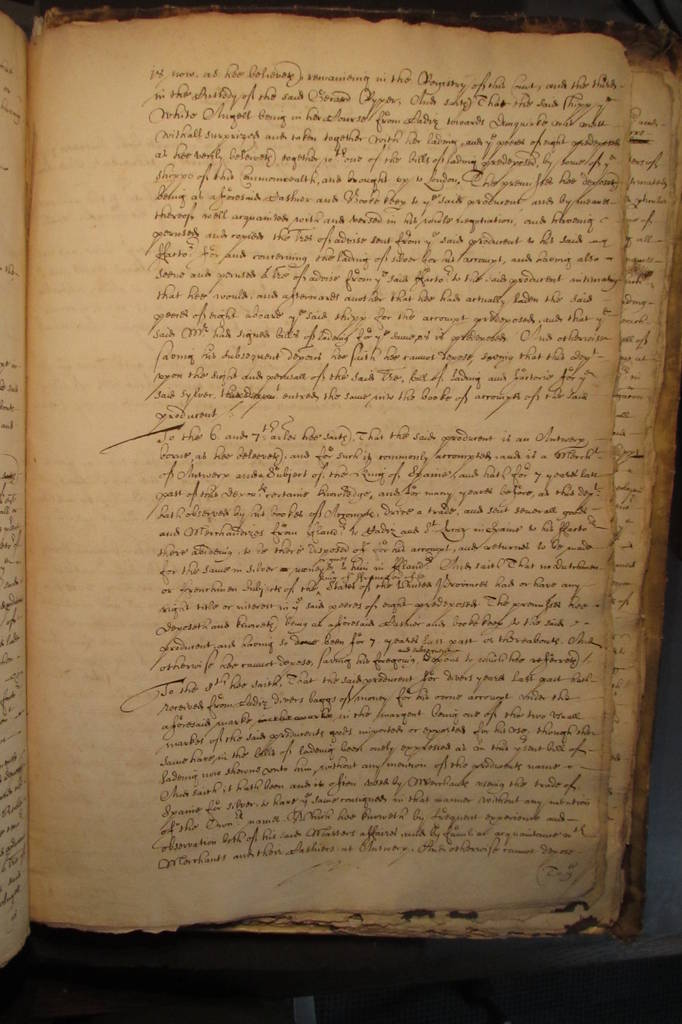 is now, as hee beleeveth, remaineing in the Registry of this Court, and the third
in the Custody of the said Gerard Ryper. And saith That the said shipp ye
White Angell being in her Course from Cadiz towards Dunquirke was
withall surprized and taken together with her lading, and ye peeces of eight predeposed
as hee verily beleeveth, together with one of the bills of lading predeposed, by some of ye
shipps of this Commonwealth, and brought up to London. The premisses hee deposeth
being as aforesaid Cashier and Booke keeper to ye said producent and by meanes
thereof well acquainted with and versed in his whole negotiation, and haveing
perused and copied the Tres of advise sent from ye said producent to his said
Factor for and concerning the lading of silver for his accompt, and haveing also
seene and perused a Tre of advise from ye said Factor to the said producent intimating
that hee would, and afterwards another that hee had actually laden the said
peeces of eight aboard ye said shipp for the accompt predeposed, and that ye
said Mr had signed bills of lading for ye same, as is predeposed. And otherwise
saving his subsequent deposicon hee saith hee cannot depose, saveing that this depont
upon the sight and perusall of the said Tre, bill of lading and factorie for ye
said sylver, entred the same into the booke of accompts of the said
producent.
To the 6. and 7th arles hee saith, That the said producent is an Antwerp
borne, as hee beleeveth, and for such is commonly accompted, and is a Merchant
of Antwerp and a Subject of the King of Spaine, and hath for 7 yeares last
past of this deponents certaine knowledge, and for many yeares before, as this depont
hath observed by his bookes of Accompts, drive a trade, and sent severall goods
and Merchandizes from flanders to Cadiz and St Lucar in Spaine to his factors
there abideing, to be there disposed of for his accompt, and returnes to be made
for the same in silver moneys to him in flanders. And saith That no dutchmen
or frenchmen Subjects of the States of the United Provinces had or have any
right title or interest in ye said peeces of eight predeposed. The premisses hee
deposeth and knoweth being as aforesaid Cashier and booke keeper to the said
producent, and haveing so been for 7 yeares last past or thereabouts. And
otherwise hee cannot depose, saving his foregoing and subsequent deposicons to which hee referreth
To the 8th hee saith, That the said producent for divers yeares last past hath
received from Cadiz divers baggs of money for his owne accompt under the
aforesaid marke in the margent being one of the two usuall
markes of the said producents goods imported or exported for his use, though the
same have in the bills of ladeing been onely expressed as in this present bill of
ladeing now showne unto him, without any mention of the producents name
And saith, it hath been and is often used by Merchants useing the trade of
Spaine for silver to have ye same consigned in that manner without any mention
of the Owners names. Which hee knoweth by frequent experience and
observation both of his said Masters affaires, and by familiar acquaintance with
Merchants and their Cashiers at Antwerp. And otherwise cannot depose.